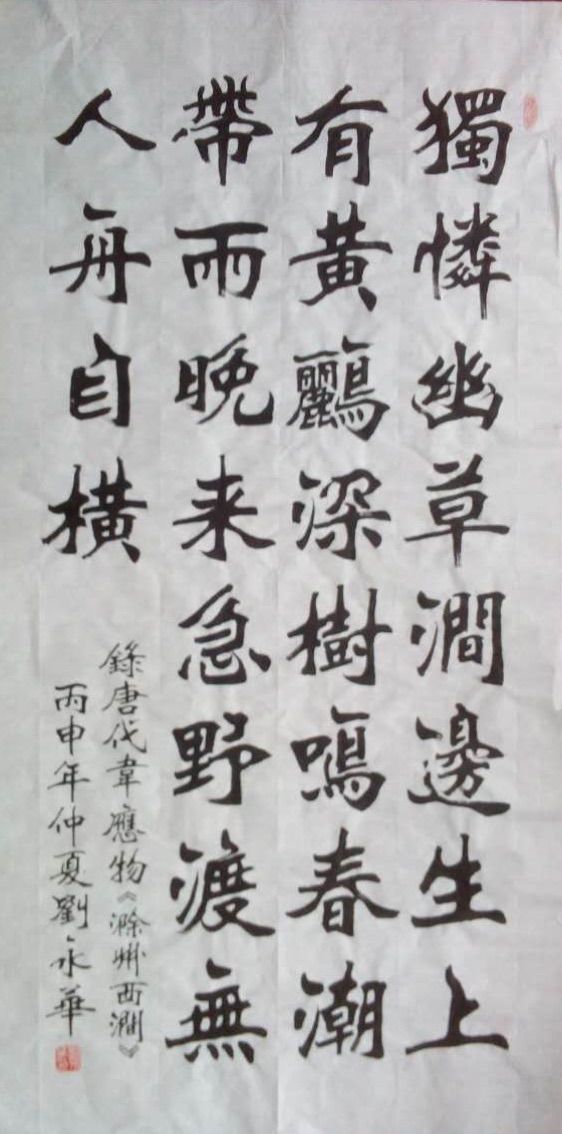 獨憐幽草澗邊生上
有黃鸝深樹鳴春潮
帶雨晚来急野渡無
人舟自橫
錄唐代韋應物《滁州西澗》
丙申年仲夏劉永華